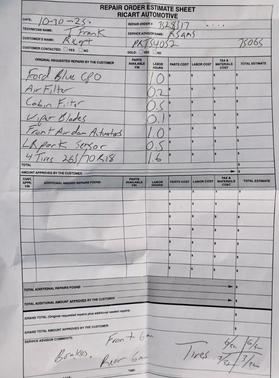 REPAIR ORDER ESTIMATE SHEET
RICART AUTOMOTIVE
DATE: 10-20-25 REPAIR ORDER #:
TECHNICIAN NAME: T Frank SERVICE ADVISOR NAME: ASAMS
CUSTOMER'S NAME: Ricart 75065
CUSTOMER CONTACTED: YES NO
ORIGINAL REQUESTED REPAIRS BY CUSTOMER PARTS AVAILABLE Y/N LABOR HOURS PARTS COST LABOR COST TAX & MATERIALS COST TOTAL ESTIMATE
Ford Blue CPO 1.0
Air Filter 0.2
Cabin Filter 0.5
Wiper Blades 0.1
Front Air dam Actuators 1.0
LR park Sensor 0.5
4 Tires 265/70R18 1.6
TOTAL
AMOUNT APPROVED BY THE CUSTOMER
ADDITIONAL NEEDED REPAIRS FOUND PARTS AVAILABLE Y/N LABOR HOURS PARTS COST LABOR COST TAX & MATERIALS COST TOTAL ESTIMATE
TOTAL ADDITIONAL REPAIRS FOUND
TOTAL ADDITIONAL AMOUNT APPROVED BY THE CUSTOMER
GRAND TOTAL (Original requested repairs plus additional needed repairs)
GRAND TOTAL AMOUNT APPROVED BY THE CUSTOMER
SERVICE ADVISOR COMMENTS
Front 6m
Brakes, Rear 6m Tires